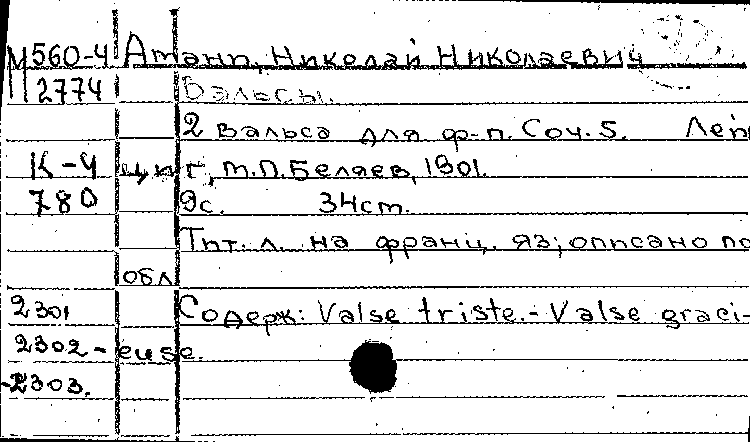 М560-4 Аманн, Николай Николаевич
2774 Вальсы.
2 вальса для ф-п. Соч. 5. Лейп
К-4 циг, М.П. Беляев, 1901.
780 9с. 34cm.
Тит. л. на франц. яз; описано по
обл
2301 Содерж: Valse triste. - Valse graci-
2302- euse.
-2303.